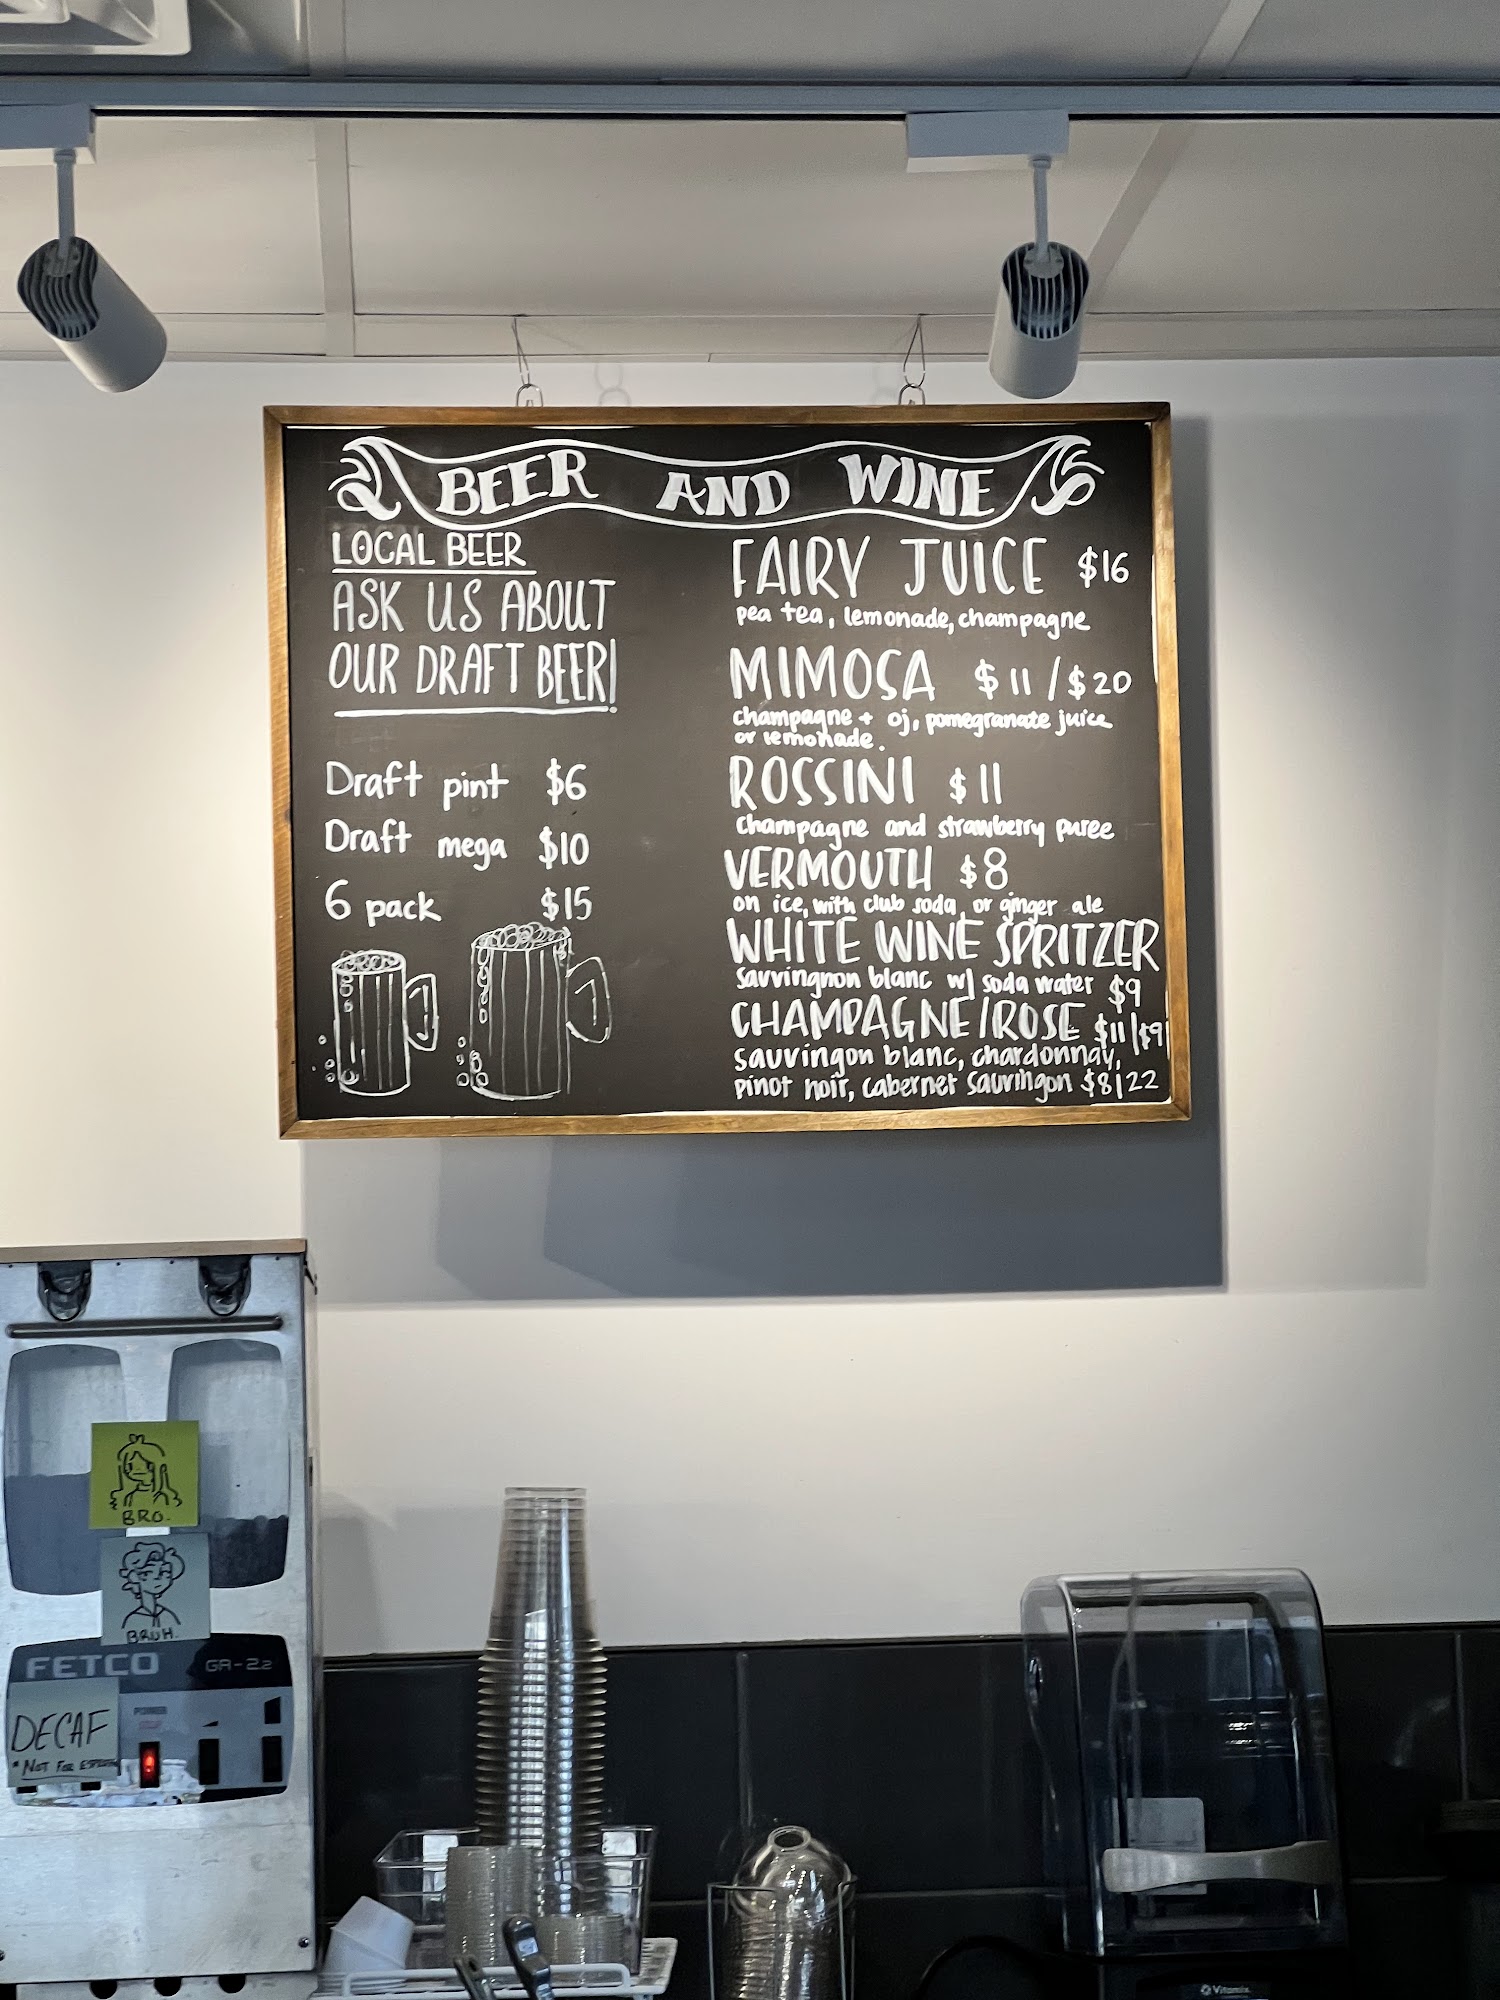 BEER AND WINE
LOCAL BEER
ASK US ABOUT
OUR DRAFT BEER!
Draft pint $6
Draft mega $10
6 pack $15
FAIRY JUICE $16
pea tea, lemonade, champagne
MIMOSA $11/$20
champagne + oj, pomegranate juice
or lemonade.
ROSSINI $11
Champagne and strawberry puree
VERMOUTH $8
on ice, with club soda, or ginger ale
WHITE WINE SPRITZER
sauvingnon blanc w/ soda water $9
CHAMPAGNE/ROSE $11/$9
sauvingon blanc, chardonnay,
pinot noir, cabernet sauvingon $8/22
BRO.
BRUH.
FETCO GR-2.2
POWER
DECAF
*NOT FOR
Vitamix